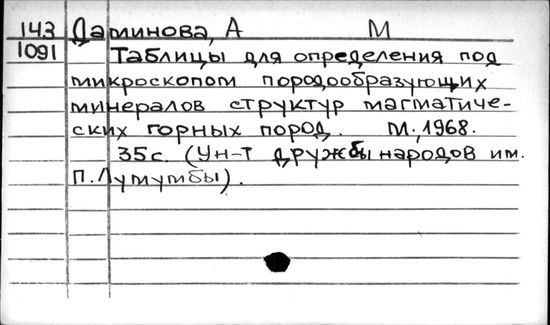 143 Даминова, А М
1091 Таблицы для определения под
микроскопом породообразующих
минералов структур магматиче-
ских горных пород. М., 1968.
35с. (Ун-т дружбы народов им.
П. Лумумбы).